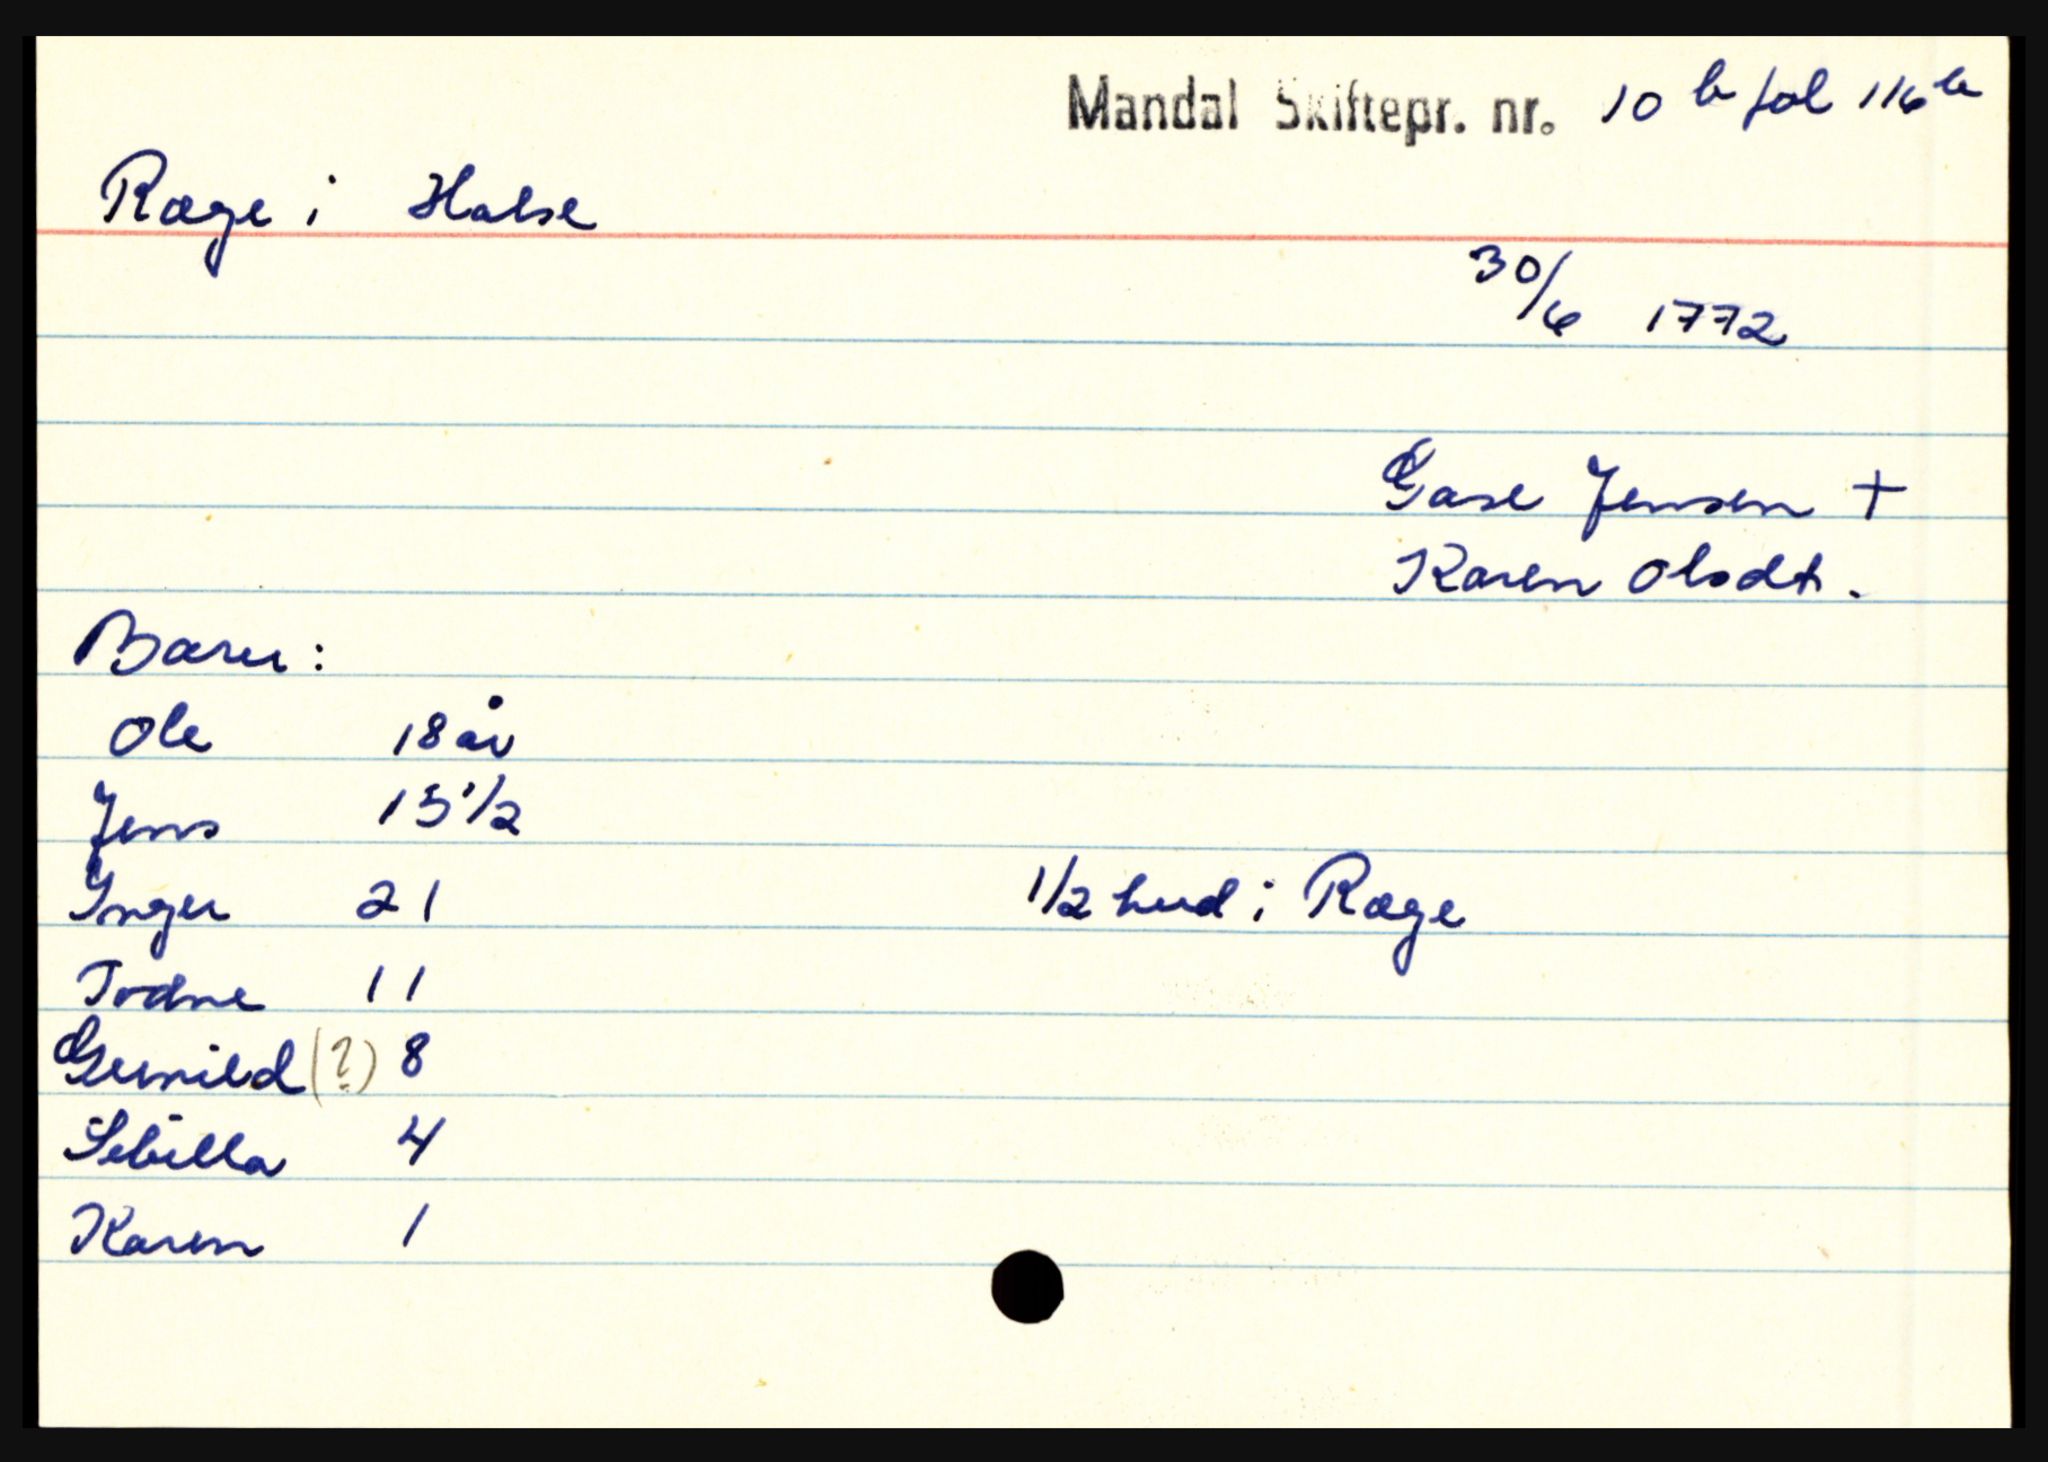 Mandal Skiftepr. nr. 10 b fol 116 b
Ræge i Halse
30/6 1772
Gase Jensen +
Karen Olsdt.
Barn:
Ole 18 år
Jens 15 1/2
Inger 21
1/2 hud i Ræge
Todne 11
Gunild (?) 8
Sebilla 4
Karen 1